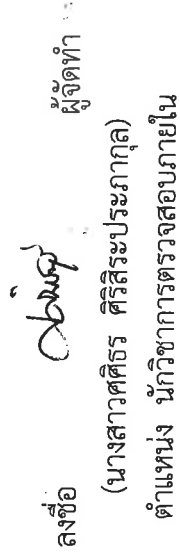 ลงชื่อ ผู้จัดทำ
(นางสาวศศิธร ศิริสิระประภากุล)
ตำแหน่ง นักวิชาการตรวจสอบภายใน